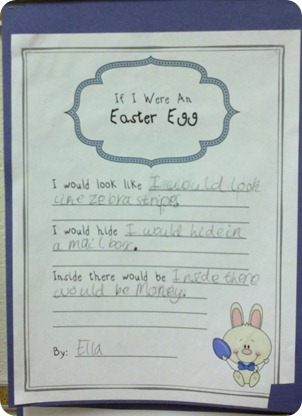 If I Were An
Easter Egg
I would look like I would look
like zebra stripes
I would hide I would hide in
a mailbox.
Inside there would be Inside there
would be Money.
By: Ella